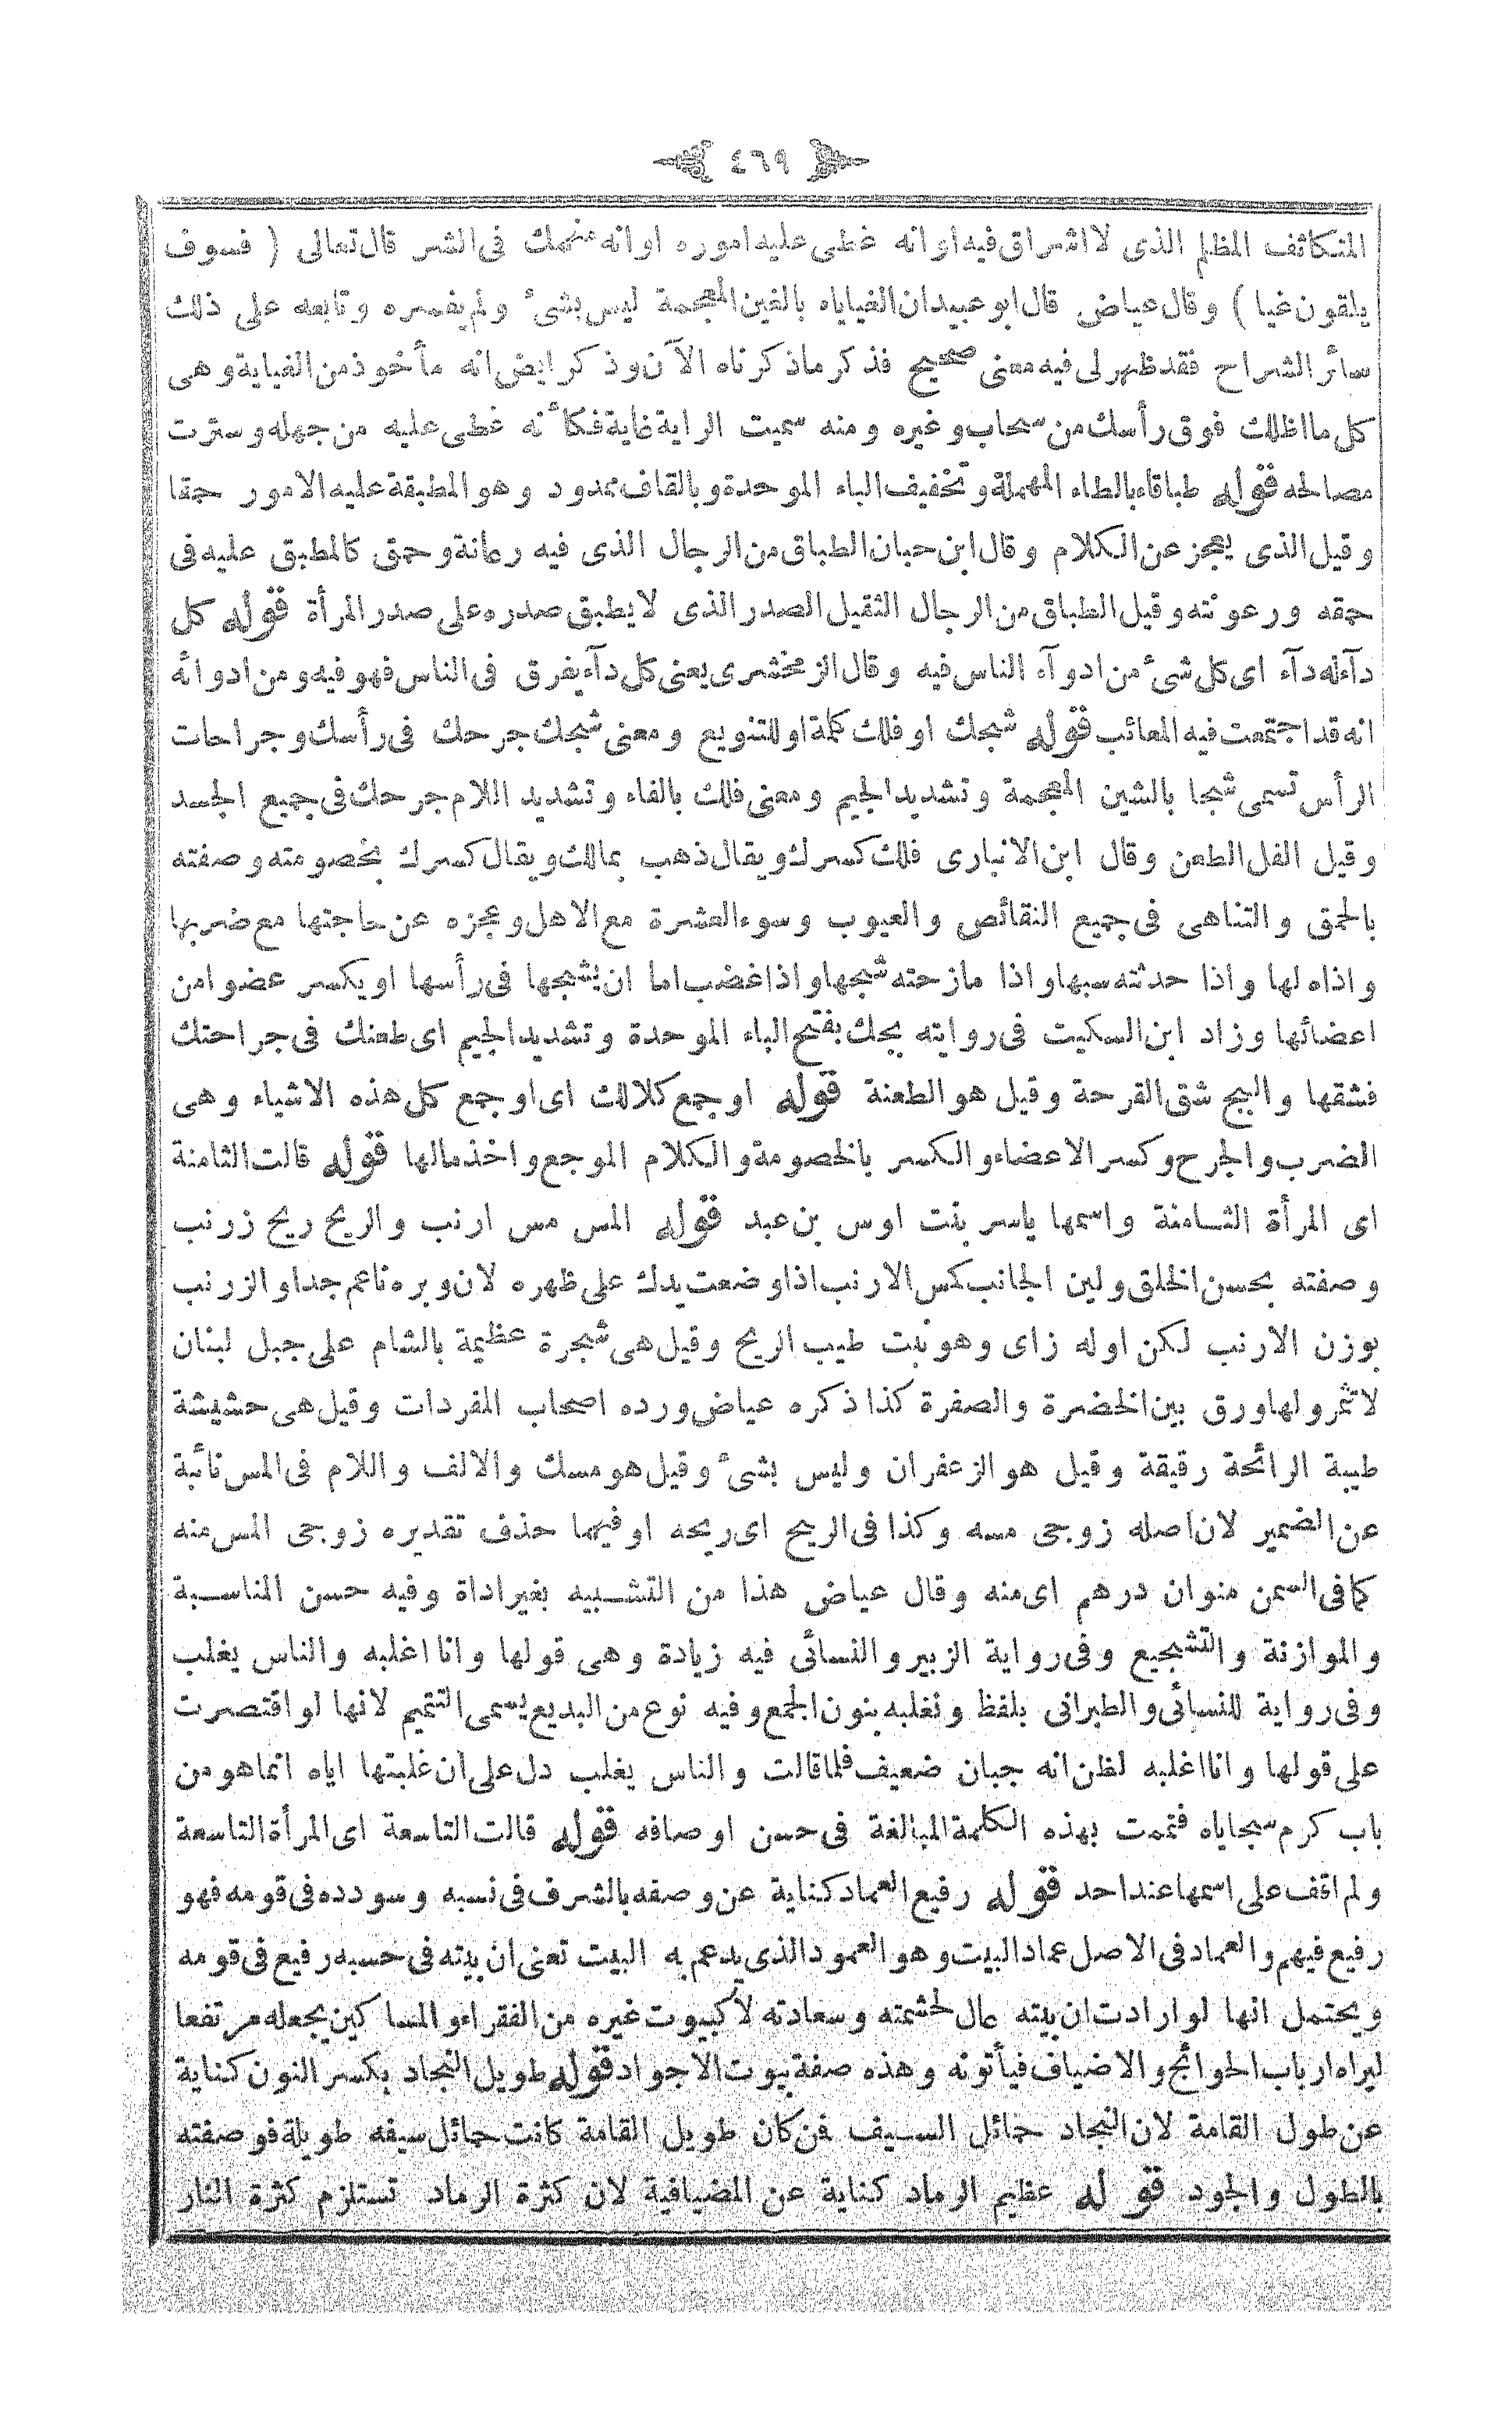 ٤٦٩
المتكاثف المظلم الذى لا اشراق فيه او انه غطى عليه اموره او انه منهمك فى الشر قال تعالى ( فسوف
يلقون غيا ) وقال عياض قال ابو عبيد ان الغياياه بالغين المعجمة ليس بشىء ولم يفسره وتابعه على ذلك
سائر الشراح فقد ظهر لى فيه معنى صحيح فذكر ما ذكرناه الآن وذكر ايض انه مأخوذ من الغياية وهى
كل ما اظلك فوق رأسك من سحاب وغيره ومنه سميت الراية غاية فكأنه غطى عليه من جهله وسترت
مصالحه قوله طباقاء بالطاء المهملة وتخفيف الباء الموحدة وبالقاف ممدود وهو المطبقة عليه الامور حمقا
وقيل الذى يعجز عن الكلام وقال ابن حبان الطباق من الرجال الذى فيه رعانة وحمق كالمطبق عليه فى
حمقه ورعونته وقيل الطباق من الرجال الثقيل الصدر الذى لا يطبق صدره على صدر المرأة قوله كل
دآء له دآء اى كل شىء من ادوآء الناس فيه وقال الزمخشرى يعنى كل دآء يفرق فى الناس فهو فيه ومن ادوائه
انه قد اجتمعت فيه المعائب قوله شجك او فلك كلمة او للتنويع ومعنى شجك جرحك فى رأسك وجراحات
الرأس تسمى شجا بالشين المعجمة وتشديد الجيم ومعنى فلك بالفاء وتشديد اللام جرحك فى جميع الجسد
وقيل الفل الطعن وقال ابن الانبارى فلك كسرك ويقال ذهب بمالك ويقال كسرك بخصومته وصفته
بالحمق والتناهى فى جميع النقائص والعيوب وسوء العشرة مع الاهل وعجزه عن حاجتها مع ضربها
واذاه لها واذا حدثته سبها واذا مازحته شجها واذا غضب اما ان يشجها فى رأسها او يكسر عضوا من
اعضائها وزاد ابن السكيت فى روايته بجك بفتح الباء الموحدة وتشديد الجيم اى طعنك فى جراحتك
فشقها والبج شق القرحة وقيل هو الطعنة قوله او جمع كلالك اى او جمع كل هذه الاشياء وهى
الضرب والجرح وكسر الاعضاء والكسر بالخصومة والكلام الموجع واخذ مالها قوله قالت الثامنة
اى المرأة الثامنة واسمها ياسر بنت اوس بن عبد قوله المس مس ارنب والريح ريح زرنب
وصفته بحسن الخلق ولين الجانب كمس الارنب اذا وضعت يدك على ظهره لان وبره ناعم جدا والزرنب
بوزن الارنب لكن اوله زاى وهو نبت طيب الريح وقيل هى شجرة عظيمة بالشام على جبل لبنان
لا تثمر ولها ورق بين الخضرة والصفرة كذا ذكره عياض ورده اصحاب المفردات وقيل هى حشيشة
طيبة الرائحة رقيقة وقيل هو الزعفران وليس بشىء وقيل هو مسك والالف واللام فى المس نائبة
عن الضمير لان اصله زوجى مسه وكذا فى الريح اى ريحه او فيهما حذف تقديره زوجى المس منه
كما فى السمن منوان درهم اى منه وقال عياض هذا من التشبيه بغير اداة وفيه حسن المناسبة
والموازنة والتشجيع وفى رواية الزبير والنسائى فيه زيادة وهى قولها وانا اغلبه والناس يغلب
وفى رواية للنسائى والطبرانى بلفظ ونغلبه بنون الجمع وفيه نوع من البديع يسمى التتميم لانها لو اقتصرت
على قولها وانا اغلبه لظن انه جبان ضعيف فلما قالت والناس يغلب دل على ان غلبتها اياه انما هو من
باب كرم سجاياه فتممت بهذه الكلمة المبالغة فى حسن اوصافه قوله قالت التاسعة اى المرأة التاسعة
ولم اقف على اسمها عند احد قوله رفيع العماد كناية عن وصفه بالشرف فى نسبه وسودده فى قومه فهو
رفيع فيهم والعماد فى الاصل عماد البيت وهو العمود الذى يدعم به البيت تعنى ان بيته فى حسبه رفيع فى قومه
ويحتمل انها لو ارادت ان بيته عال لحشمته وسعادته لا كبيوت غيره من الفقراء والمساكين يجعله مرتفعا
ليراه ارباب الحوائج والاضياف فيأتونه وهذه صفة بيوت الاجواد قوله طويل النجاد بكسر النون كناية
عن طول القامة لان النجاد حمائل السيف فمن كان طويل القامة كانت حمائل سيفه طويلة فوصفته
بالطول والجود قوله عظيم الرماد كناية عن المضيافية لان كثرة الرماد تستلزم كثرة النار